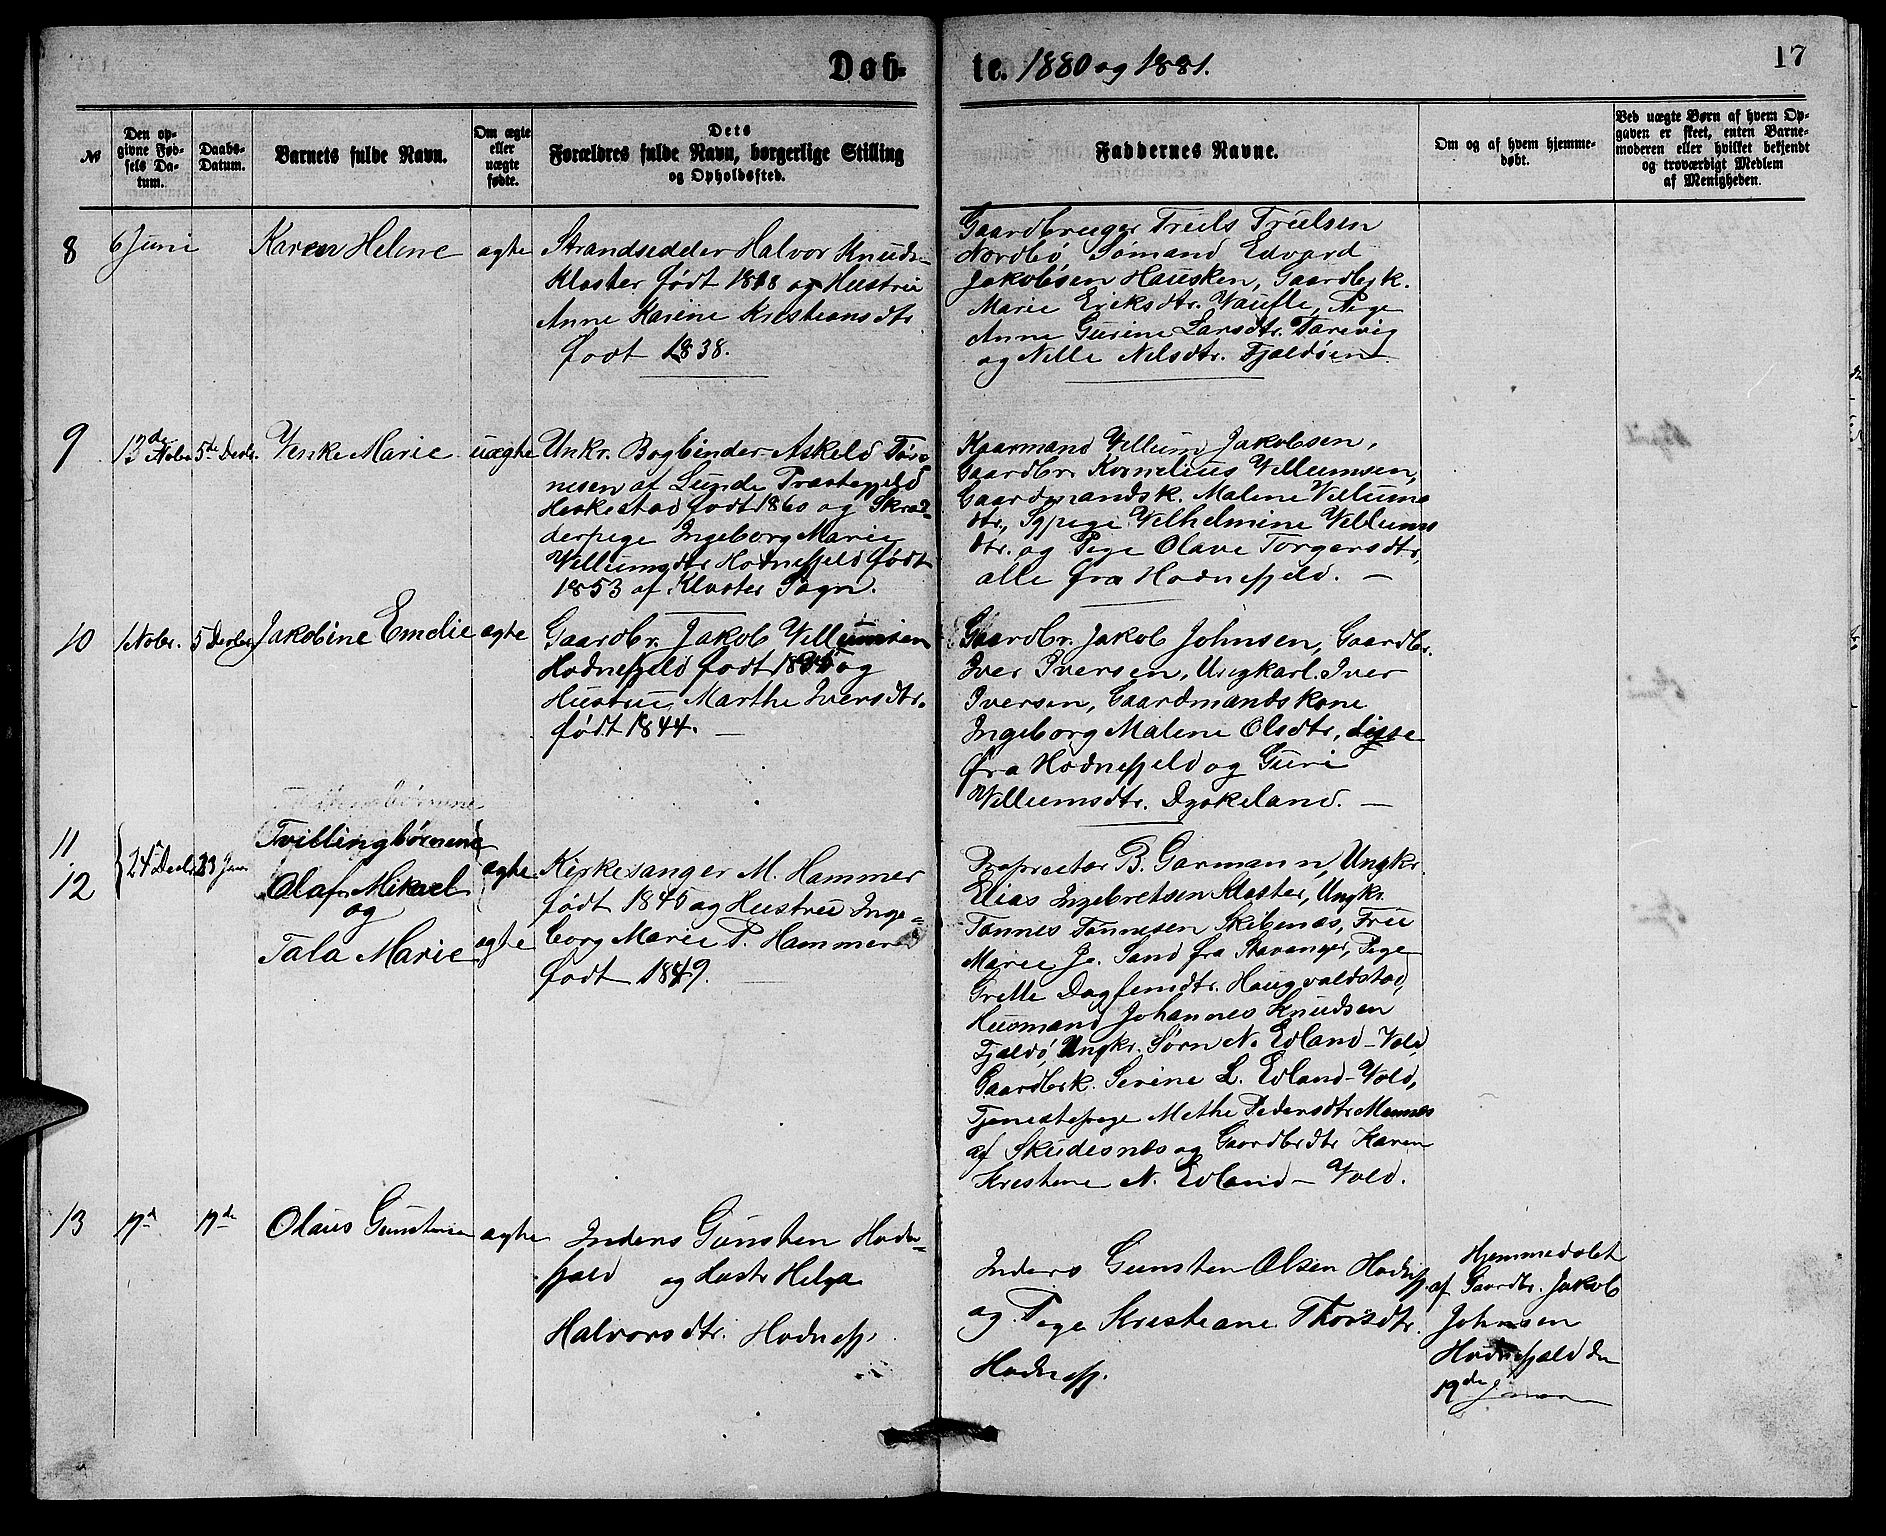 Døb-
te. 1880 og 1881.
17
№
Den op-
givne Fød-
sels Da-
tum.
Daabs-
Datum.
Barnets fulde Navn.
Om ægte
eller
uægte
fødte.
Dets
Forældres fulde Navn, borgerlige Stilling
og Opholdssted.
Faddernes Navne.
Om og af hvem hjemme-
døbt.
Ved uægte Børn af hvem Op-
gaven er skeet, enten Barne-
moderen eller hvilket bekjendt
og troværdigt Medlem
af Menigheden.
8
6 Juni
Karen Helene
ægte
Strandsidder Halvor Knuds-
Kloster født 1818 og Hustru
Anne Karine Kristiansdtr
født 1838.
Gaardbruger Truls Trulsen
Nordbø, Sømand Edvard
Jakobsen Hausken, Gaardbrk.
Marie Eriksdtr. Vaule, Pige
Anne Gurine Larsdtr. Tarevig
og Nille Nilsdtr. Fjeldøen
9
13de Nobr.
5te Decbr.
Venke Marie
uægte
Unkr. Bogbinder Askeld Tøn-
nesen af Lunde Præstegjeld
Heskestad født 1860 og Skræd-
derpige Ingeborg Marie
Villumsdtr Hodnefjeld født
1853 af Kloster Sogn.
Kaarmand Villum Jakobsen,
Gaardbr. Kornelius Villumsen,
Gaardmandsk. Malene Villums
dtr., Sypige Vilhelmine Villums
dtr. og Pige Olave Torgersdtr,
alle fra Hodnefjeld.
10
1 Nobr.
5 Decbr
Jakobine Emelie
ægte
Gaardbr. Jakob Villumsen
Hodnefjeld født 1845 og
Hustru Marthe Iversdtr.
født 1844.
Gaardbr. Jakob Johnsen, Gaardbr.
Iver Iversen, Ungkarl. Iver
Iversen, Gaardmandskone
Ingeborg Malene Olsdtr, disse
fra Hodnefjeld og Guri
Villumsdtr. Dyskeland.
11
12
24de Decbr
23 Jan
Tvillingbørnene
Olaf Mikael
og
Tala Marie
ægte
ægte
Kirkesanger M. Hammer
født 1845 og Hustru Inge-
borg Marie P. Hammer
født 1849.
Proprietær B. Garmann, Ungkr.
Elias Ingebretsen Kloster, Ungkr.
Tønnes Tønnesen Skibenæs, Fru
Marie Jo. Sand fra Stavanger, Pige
Grethe Dagfinndtr. Haugvaldstad,
Husmand Johannes Knudsen
Fjeldø, Ungkr. Sørn N. Edland-Vold,
Gaardbrk. Serine L. Edland-Vold,
Tjenestepige Methe Pedersdtr Mannes
af Skudesnes og Gaardbrdtr Karen
Kristine N. Edland-Vold.
13
19de
Olaus Gunstensen
ægte
Inders Gunsten Hodne-
fjeld og Hustr Helga
Halvorsdtr. Hodnefj.
Inders Gunsten Olsen Hodnefj.
og Pige Kristiane Thorsdtr.
Hodnefj.
Hjemmedøbt
af Gaardbr. Jakob
Johnsen
Hodnefjeld den
19de